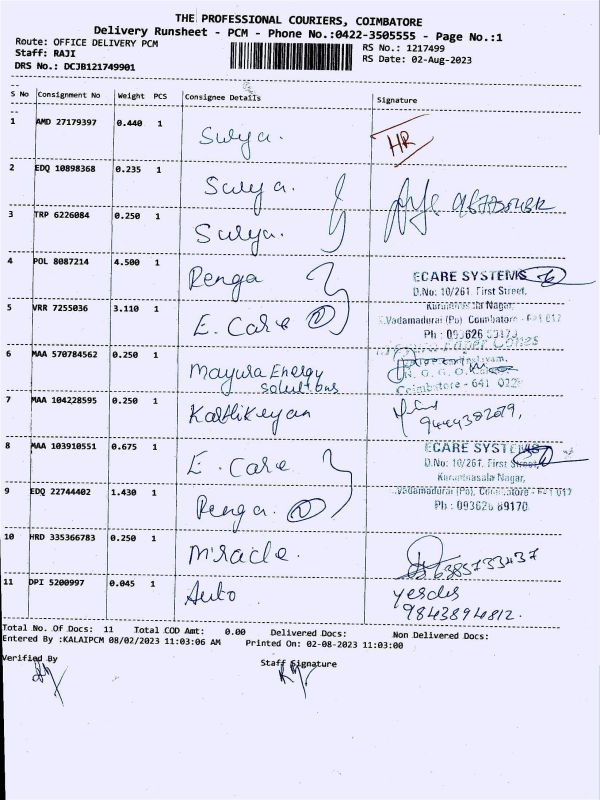 THE PROFESSIONAL COURIERS, COIMBATORE
Delivery Runsheet - PCM - Phone No.:0422-3505555 - Page No.:1
Route: OFFICE DELIVERY PCM RS No.: 1217499
Staff: RAJI RS Date: 02-Aug-2023
DRS No.: DCJB121749901
S No Consignment No Weight PCS Consignee Details Signature
1 AMD 27179397 0.440 1 Surya. HR
2 EDQ 10898368 0.235 1 Surya.
3 TRP 6226084 0.250 1 Surya.
4 POL 8087214 4.500 1 Renga
ECARE SYSTEMS
D.No: 10/261, First Street,
5 VRR 7255036 3.110 1 E. Care
Vadamadurai (Po) Coimbatore - 641 017
Ph : 093626
6 MAA 570784562 0.250 1 Mayura Energy Solutions
Coimbatore - 641 022
7 MAA 104228595 0.250 1 Karthikeyan
8 MAA 103910551 0.675 1 E. Care
ECARE SYSTEMS
D.No: 10/261, First Street,
Nagar,
9 EDQ 22744402 1.430 1 Renga.
Vadamadurai (Po), Coimbatore - 641 017
Ph : 093626 89170
10 HRD 335366783 0.250 1 Miracle. 6385733437
11 DPI 5200997 0.045 1 Auto
9843894812.
Total No. Of Docs: 11 Total COD Amt: 0.00 Delivered Docs: Non Delivered Docs:
Entered By :KALAIPCM 08/02/2023 11:03:06 AM Printed On: 02-08-2023 11:03:00
Verified By Staff Signature